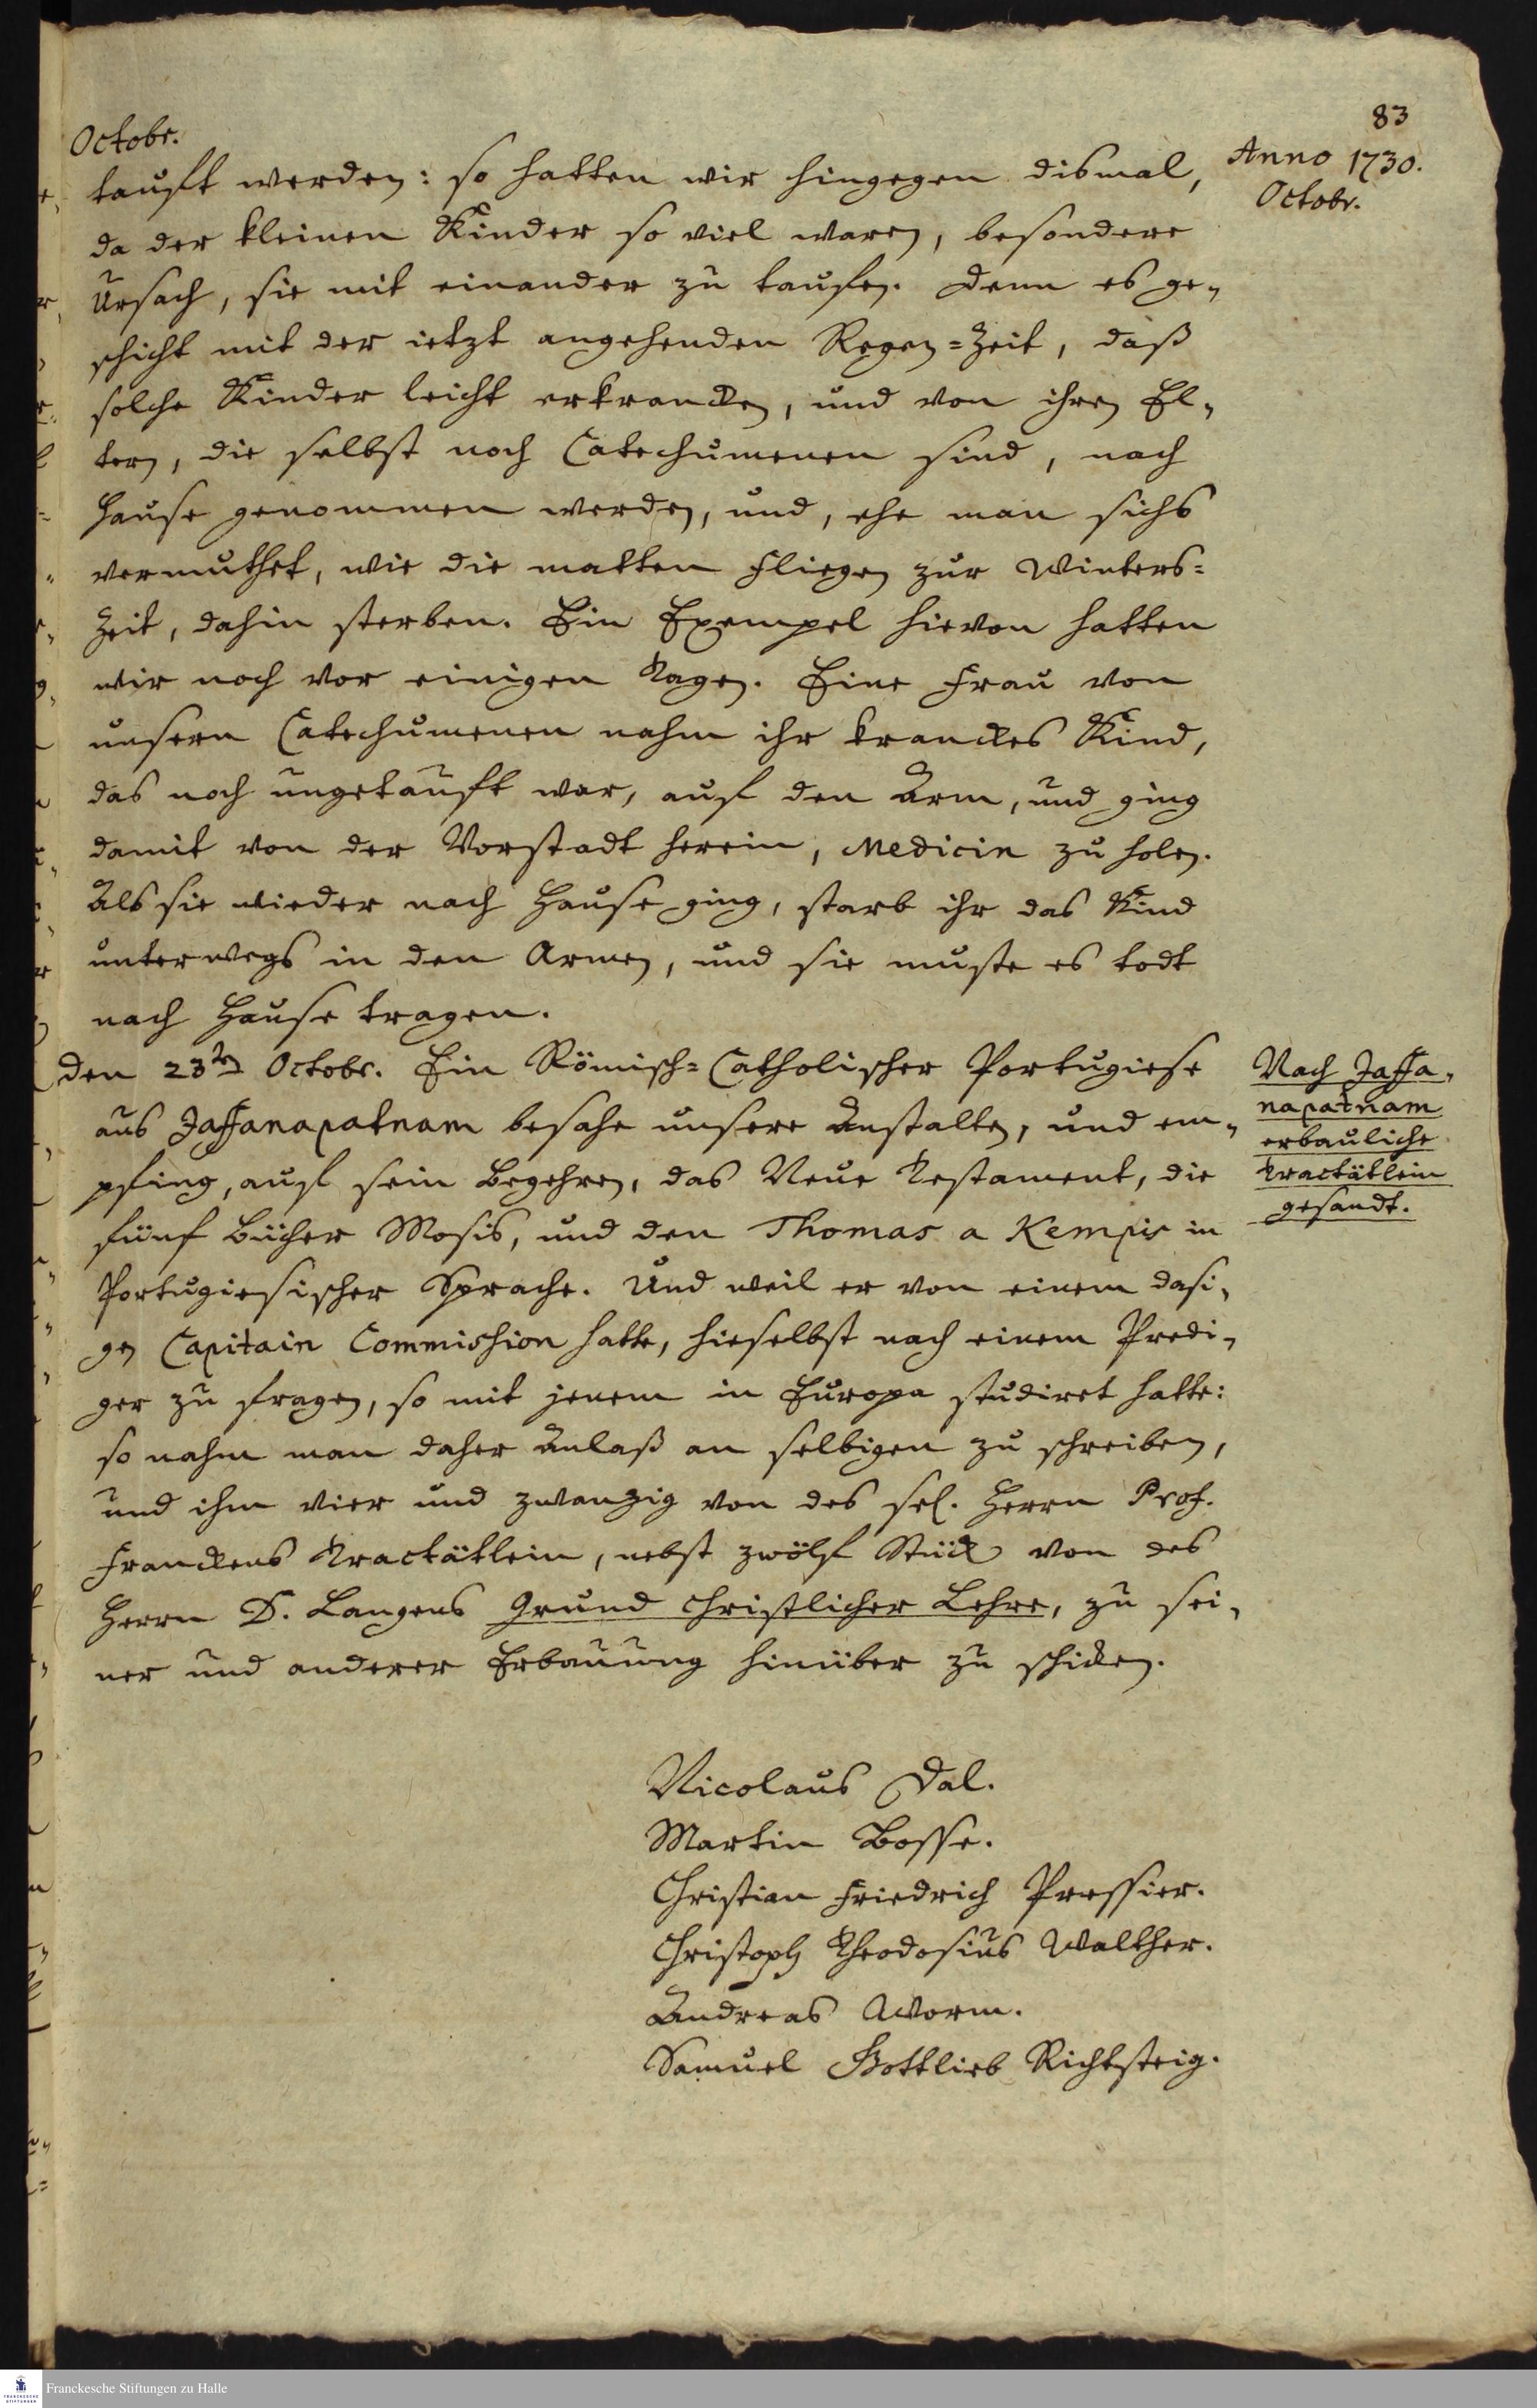 83
Octobr.
Anno 1730.
Octobr.
tauft werden: so hatten wir hingegen dismal,
da der kleinen Kinder so viel waren, besondere
Ursach, sie mit einander zu taufen. Denn es ge-
schicht mit der ietzt angehenden Regen-Zeit, daß
solche Kinder leicht erkrancken, und von ihren El-
tern, die selbst noch Catechumenen sind, nach
Hause genommen werden, und, ehe man sichs
vermuthet, wie die matten Fliegen zur Winters-
Zeit, dahin sterben. Ein Exempel hievon hatten
wir noch vor einigen Tagen. Eine Frau von
unsern Catechumenen nahm ihr kranckes Kind,
das noch ungetauft war, auf den Arm, und ging
damit von der Vorstadt herein, Medicin zu holen.
Als sie wieder nach Hause ging, starb ihr das Kind
unterwegs in den Armen, und sie muste es todt
nach Hause tragen.
den 23ten Octobr. Ein Römisch-Catholischer Portugiese
aus Jaffanapatnam besahe unsere Anstalten, und em-
pfing, auf sein Begehren, das Neue Testament, die
fünf Bücher Mosis, und den Thomas a Kempis in
Portugiesischer Sprache. Und weil er von einem dasi-
gen Capitain Commission hatte, hieselbst nach einem Predi-
ger zu fragen, so mit jenem in Europa studiret hatte:
so nahm man daher Anlaß an selbigen zu schreiben,
und ihm vier und zwanzig von des sel. Herrn Prof.
Franckens Tractätlein, nebst zwölf Stück von des
Herrn D. Langens Grund christlicher Lehre, zu sei-
ner und anderer Erbauung hinüber zu schicken.
Nach Jaffa-
napatnam
erbauliche
Tractätlein
gesandt.
Nicolaus Dal.
Martin Bosse.
Christian Friedrich Pressier.
Christoph Theodosius Walther.
Andreas Worm.
Samuel Gottlieb Richtsteig.
Franckesche Stiftungen zu Halle